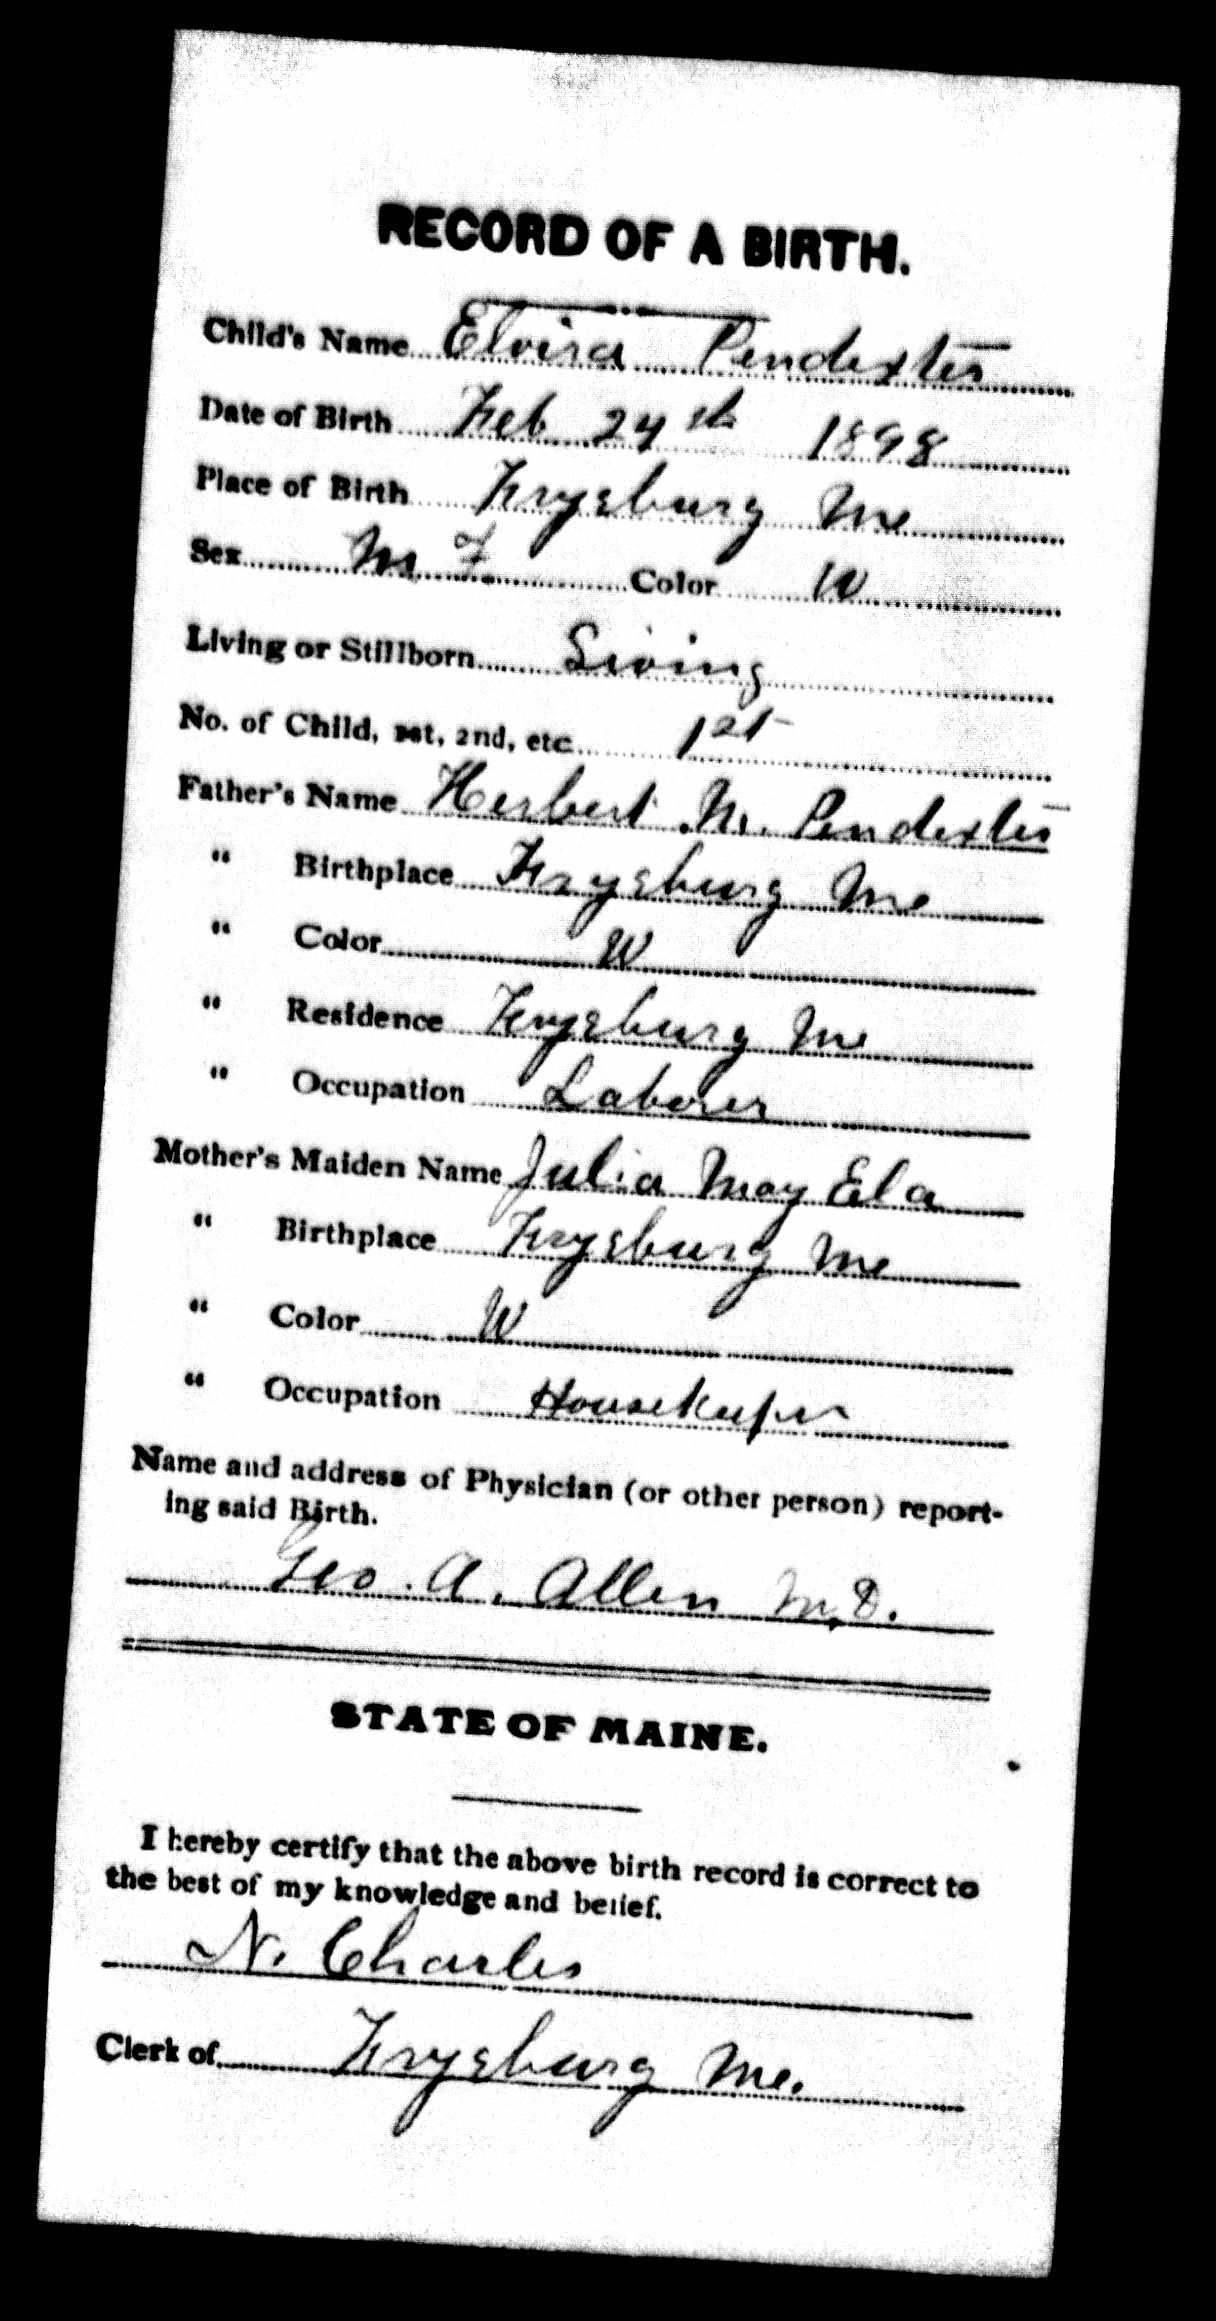 RECORD OF A BIRTH.
Child's Name Elvira Pendexter
Date of Birth Feb 24th 1898
Place of Birth Fryeburg Me
Sex M F Color W
Living or Stillborn Living
No. of Child, 1st, 2nd, etc 1st
Father's Name Herbert M. Pendexter
" Birthplace Fryeburg Me
" Color W
" Residence Fryeburg Me
" Occupation Laborer
Mother's Maiden Name Julia May Ela
" Birthplace Fryeburg Me
" Color W
" Occupation Housekeeper
Name and address of Physician (or other person) report-
ing said Birth.
Geo. A. Allen M.D.
STATE OF MAINE.
I hereby certify that the above birth record is correct to
the best of my knowledge and belief.
N. Charles
Clerk of Fryeburg Me.